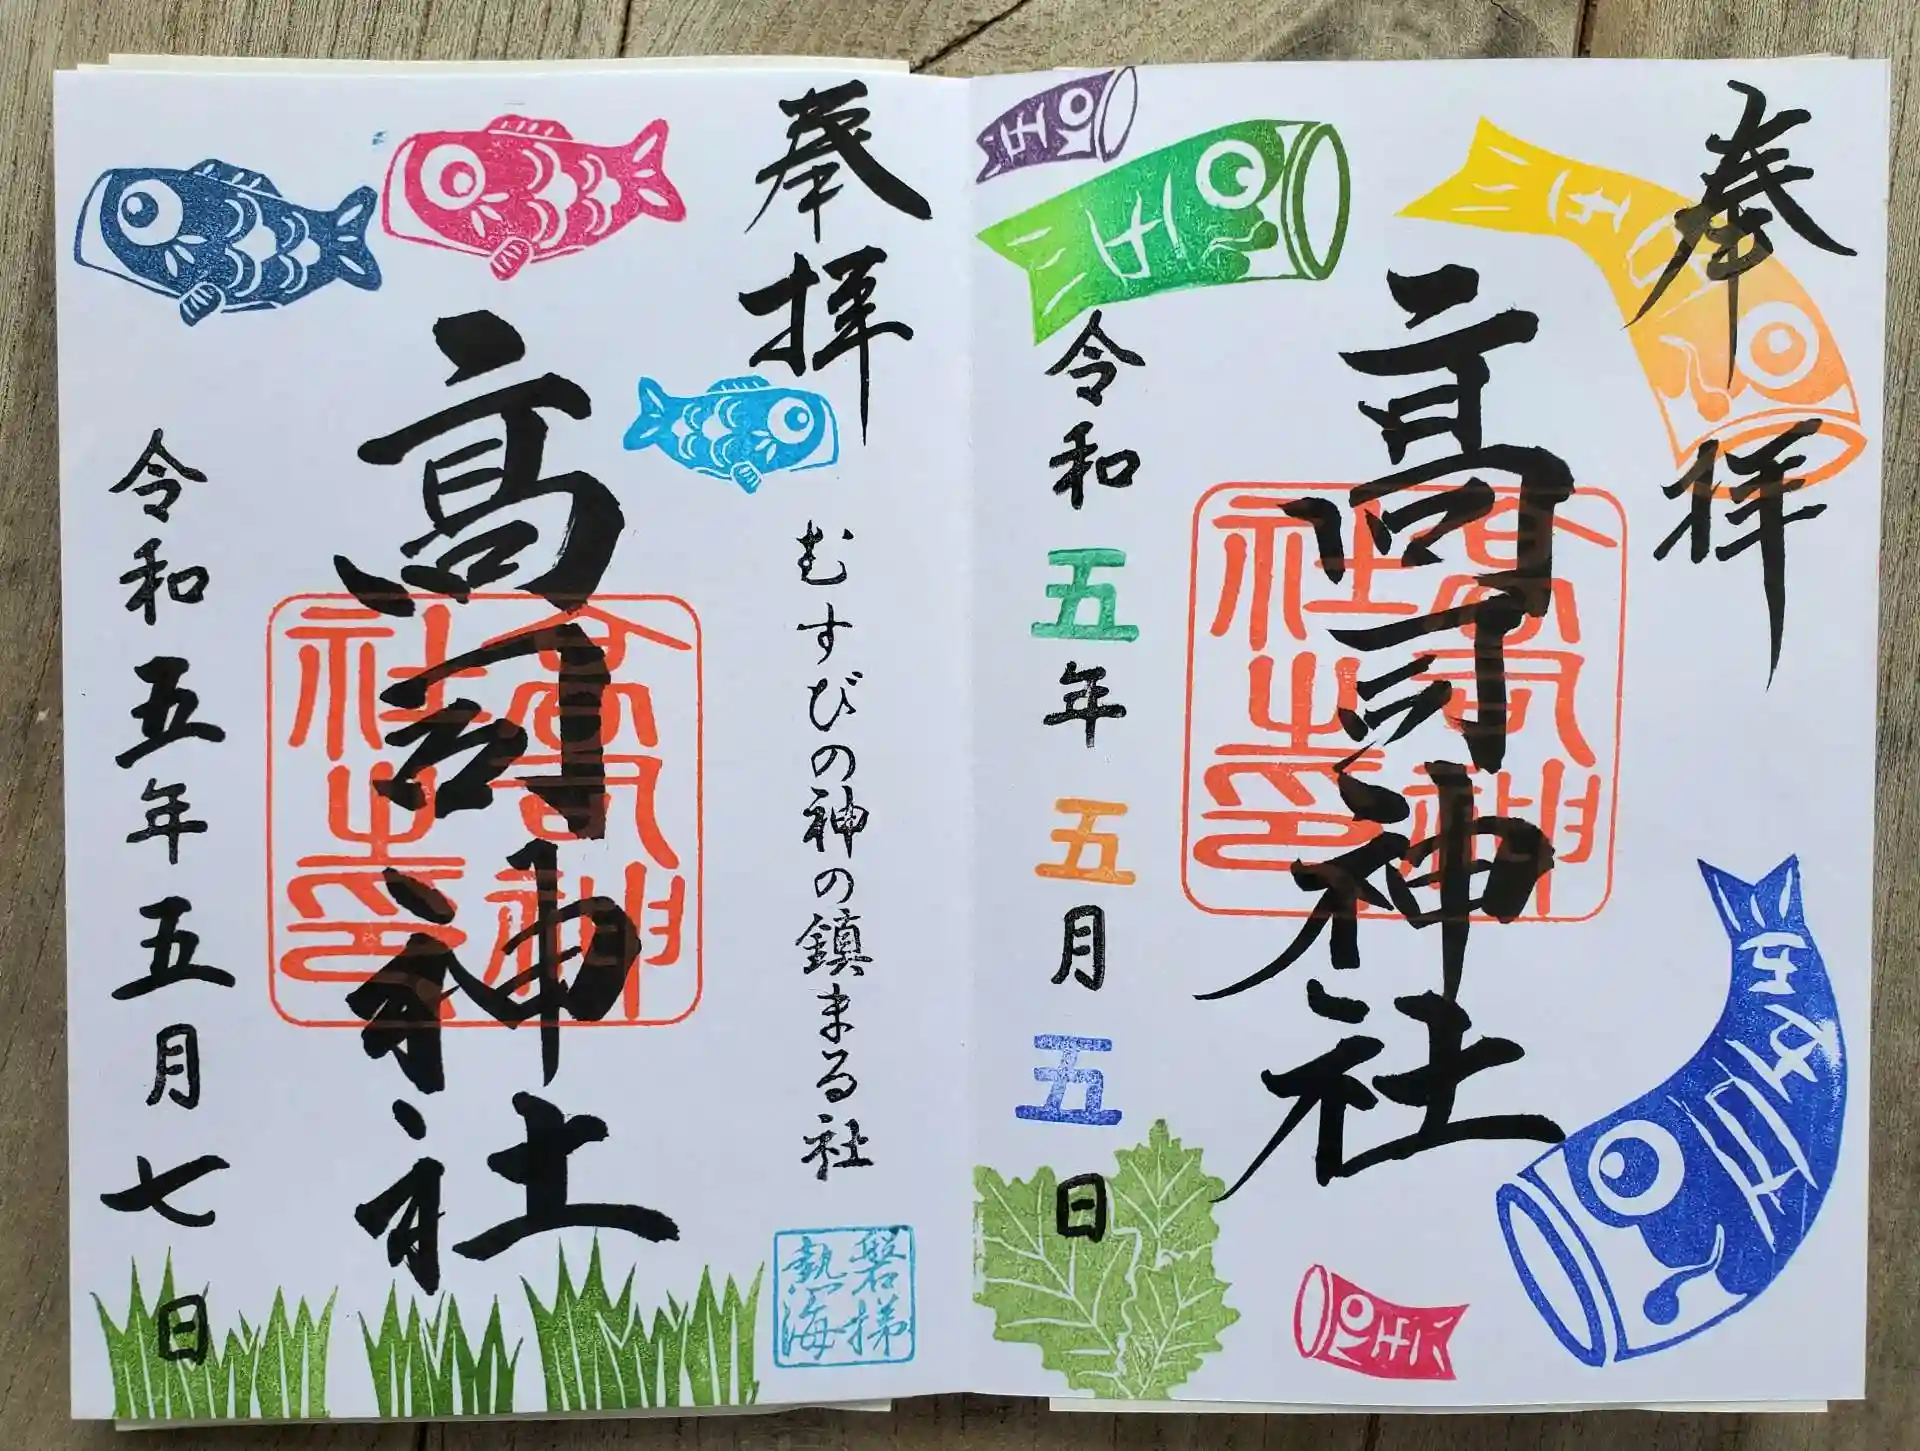 奉拝
高司神社
令和五年五月五日
奉拝
むすびの神の鎮まる社
磐梯
熱海
高司神社
令和五年五月七日
高司神
社之印
高司神
社之印